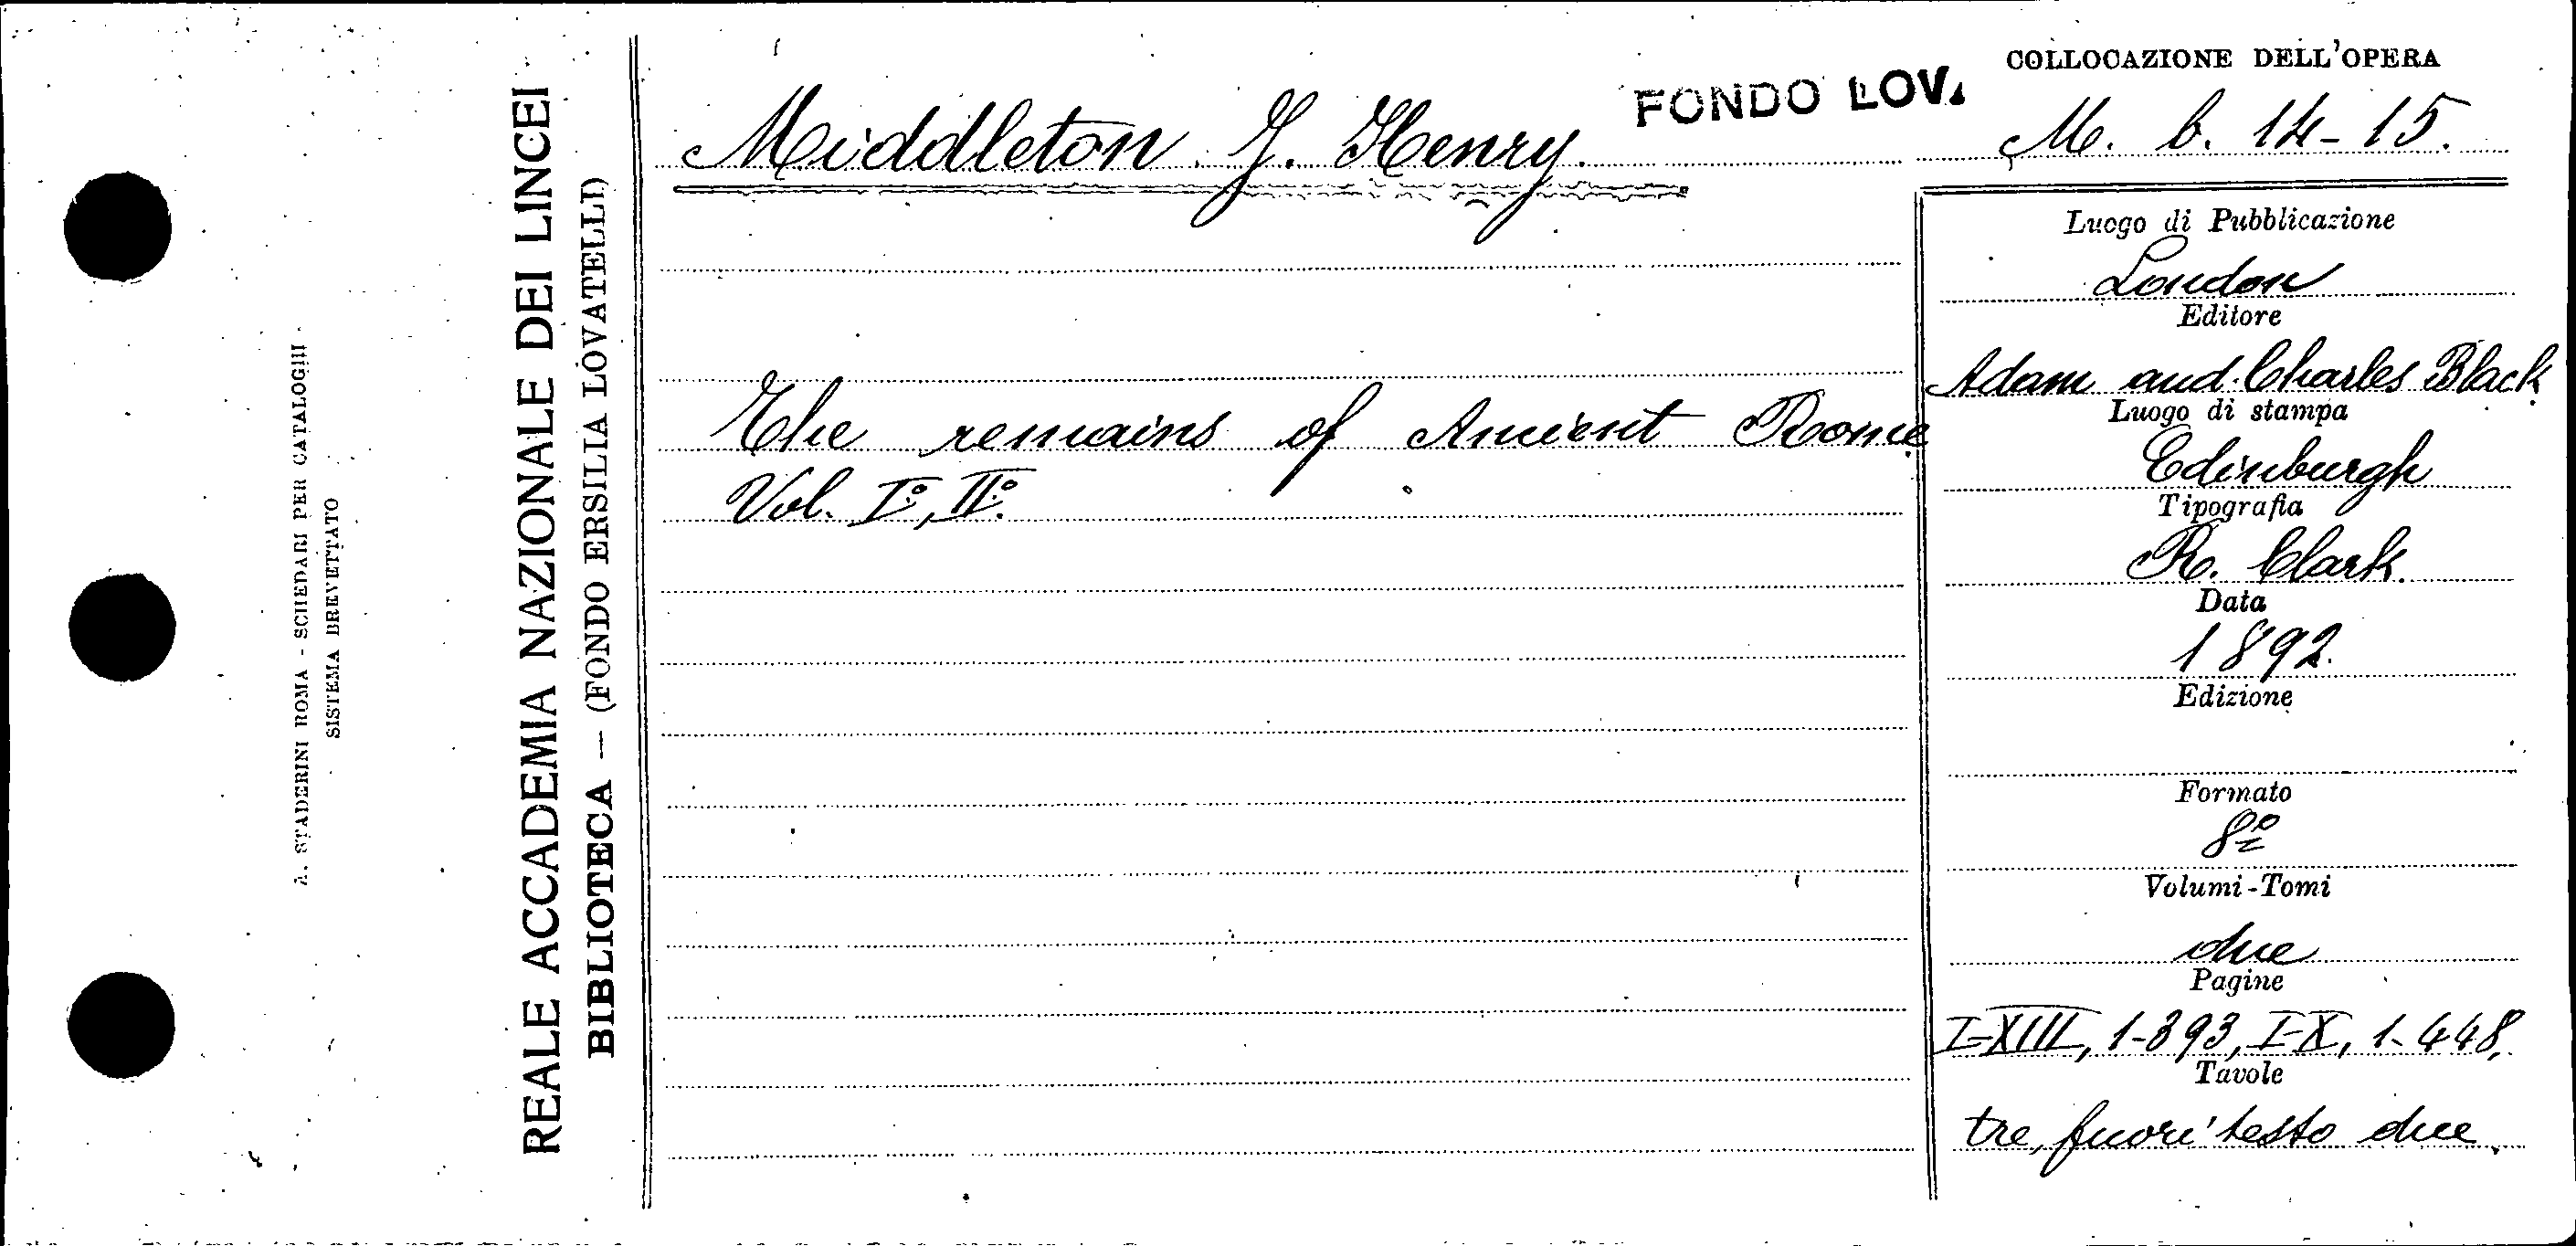 A. STADERINI ROMA - SCHEDARI PER CATALOGHI
SISTEMA BREVETTATO
REALE ACCADEMIA NAZIONALE DEI LINCEI
BIBLIOTECA — (FONDO ERSILIA LOVATELLI)
Middleton J. Henry.
FONDO LOV.
The remains of Ancient Rome
Vol. Iº, IIº.
COLLOCAZIONE DELL'OPERA
M. b. 14-15.
Luogo di Pubblicazione
London
Editore
Adam and Charles Black
Luogo di stampa
Edinburgh
Tipografia
R. Clark.
Data
1892.
Edizione
Formato
8º
Volumi-Tomi
due
Pagine
I-XIII, 1-393, I-X, 1-448.
Tavole
tre, fuori testo due.